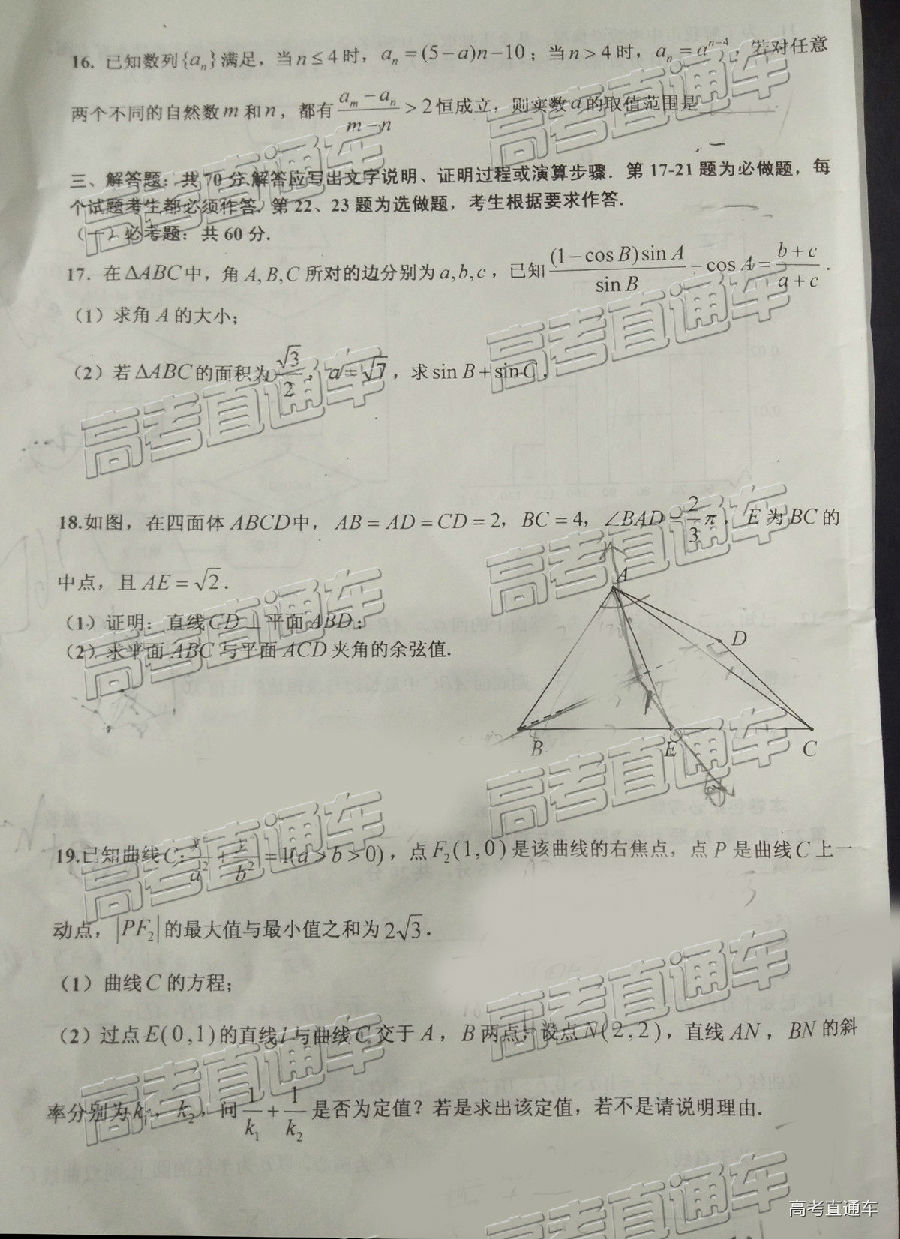 16. 已知数列{aₙ}满足，当n≤4时，aₙ=(5-a)n-10；当n>4时，aₙ=aⁿ⁻⁴，若对任意
两个不同的自然数m和n，都有 (aₘ-aₙ)/(m-n) >2恒成立，则实数a的取值范围是
三、解答题：共70分.解答应写出文字说明、证明过程或演算步骤．第17-21题为必做题，每
个试题考生都必须作答.第22、23题为选做题，考生根据要求作答.
（一）必考题：共60分.
17. 在ΔABC中，角A,B,C所对的边分别为a,b,c，已知 (1-cos B)sin A / sin B - cos A = (b+c)/(a+c).
（1）求角A的大小；
（2）若ΔABC的面积为 √3/2，a=√7，求sin B+sin C.
18.如图，在四面体ABCD中，AB=AD=CD=2，BC=4，∠BAD=2/3 π，E为BC的
中点，且AE=√2.
（1）证明：直线CD⊥平面ABD；
（2）求平面ABC与平面ACD夹角的余弦值.
A
D
B
E
C
19.已知曲线C: x²/a² + y²/b² =1(a>b>0)，点F₂(1,0)是该曲线的右焦点，点P是曲线C上一
动点，|PF₂|的最大值与最小值之和为2√3.
（1）曲线C的方程；
（2）过点E(0,1)的直线l与曲线C交于A，B两点，设点N(2,2)，直线AN，BN的斜
率分别为k₁，k₂，问 1/k₁ + 1/k₂ 是否为定值？若是求出该定值，若不是请说明理由.
高考直通车
高考直通车
高考直通车
高考直通车
高考直通车
高考直通车
高考直通车
高考直通车
高考直通车
高考直通车
高考直通车
高考直通车
高考直通车